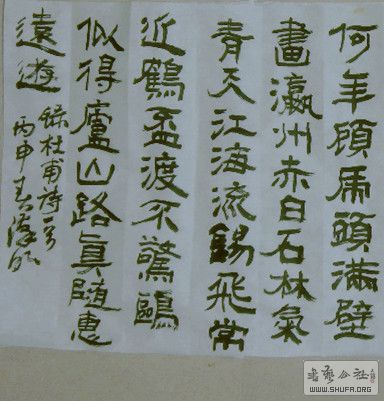 何年顧虎頭滿壁
畫瀛州赤白石林氣
青天江海流錫飛常
近鶴盃渡不驚鷗
似得廬山路眞隨惠
遠遊
錄杜甫詩一首
丙申春
書藝公社
WWW.SHUFA.ORG